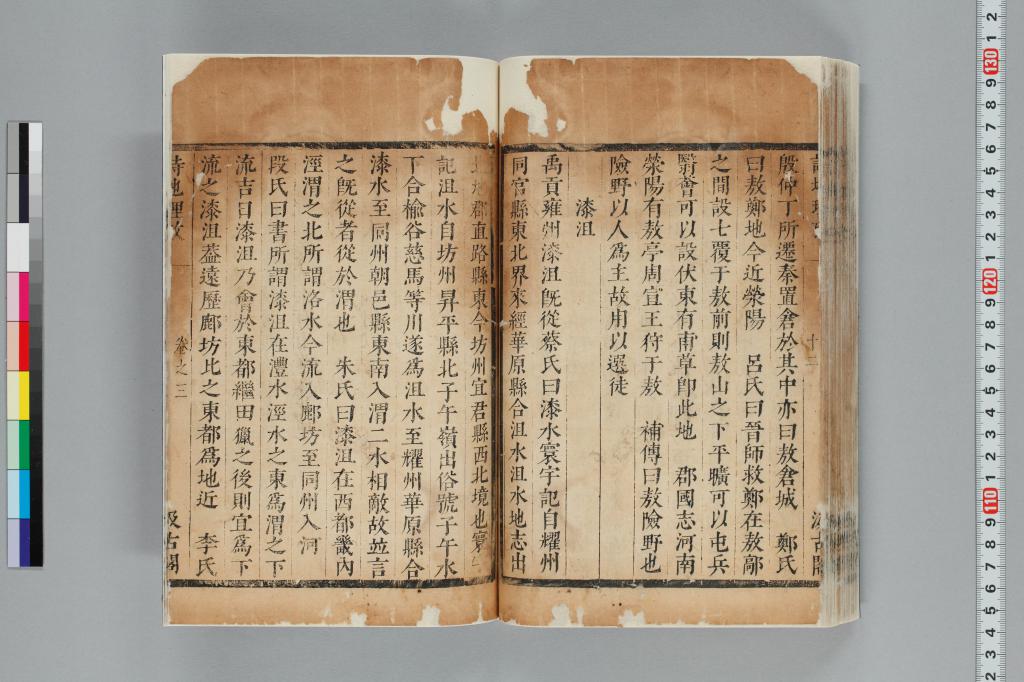 殷仲丁所遷秦置倉於其中亦曰敖倉城　鄭氏
曰敖鄭地今近滎陽　呂氏曰晉師救鄭在敖鄗
之間設七覆于敖前則敖山之下平曠可以屯兵
翳薈可以設伏東有甫草卽此地　郡國志河南
滎陽有敖亭周宣王狩于敖　補傳曰敖險野也
險野以人爲主故用以選徒
漆沮
禹貢雍州漆沮旣從蔡氏曰漆水寰宇記自耀州
同官縣東北界來經華原縣合沮水沮水地志出
北地郡直路縣東今坊州宜君縣西北境也寰宇
記沮水自坊州昇平縣北子午嶺出俗號子午水
下合榆谷慈馬等川遂爲沮水至耀州華原縣合
漆水至同州朝邑縣東南入渭二水相敵故並言
之旣從者從於渭也　朱氏曰漆沮在西都畿內
涇渭之北所謂洛水今流入鄜坊至同州入河
段氏曰書所謂漆沮在灃水涇水之東爲渭之下
流吉日漆沮乃會於東都繼田獵之後則宜爲下
流之漆沮葢遠歷鄜坊比之東都爲地近　李氏
詩地理攷　卷之三　汲古閣